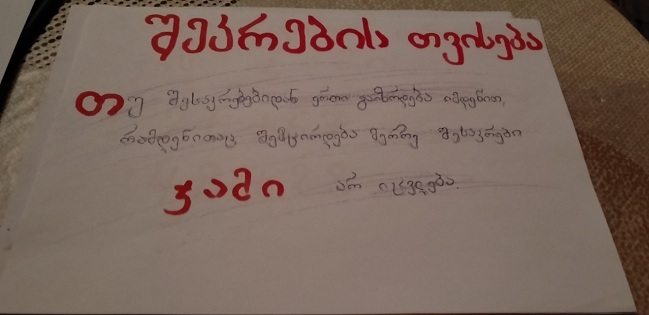 შეკრების თვისება
თუ შესაკრებებიდან ერთი გაიზრდება იმდენით,
რამდენითაც შემცირდება მეორე შესაკრები
ჯამი არ იცვლება.